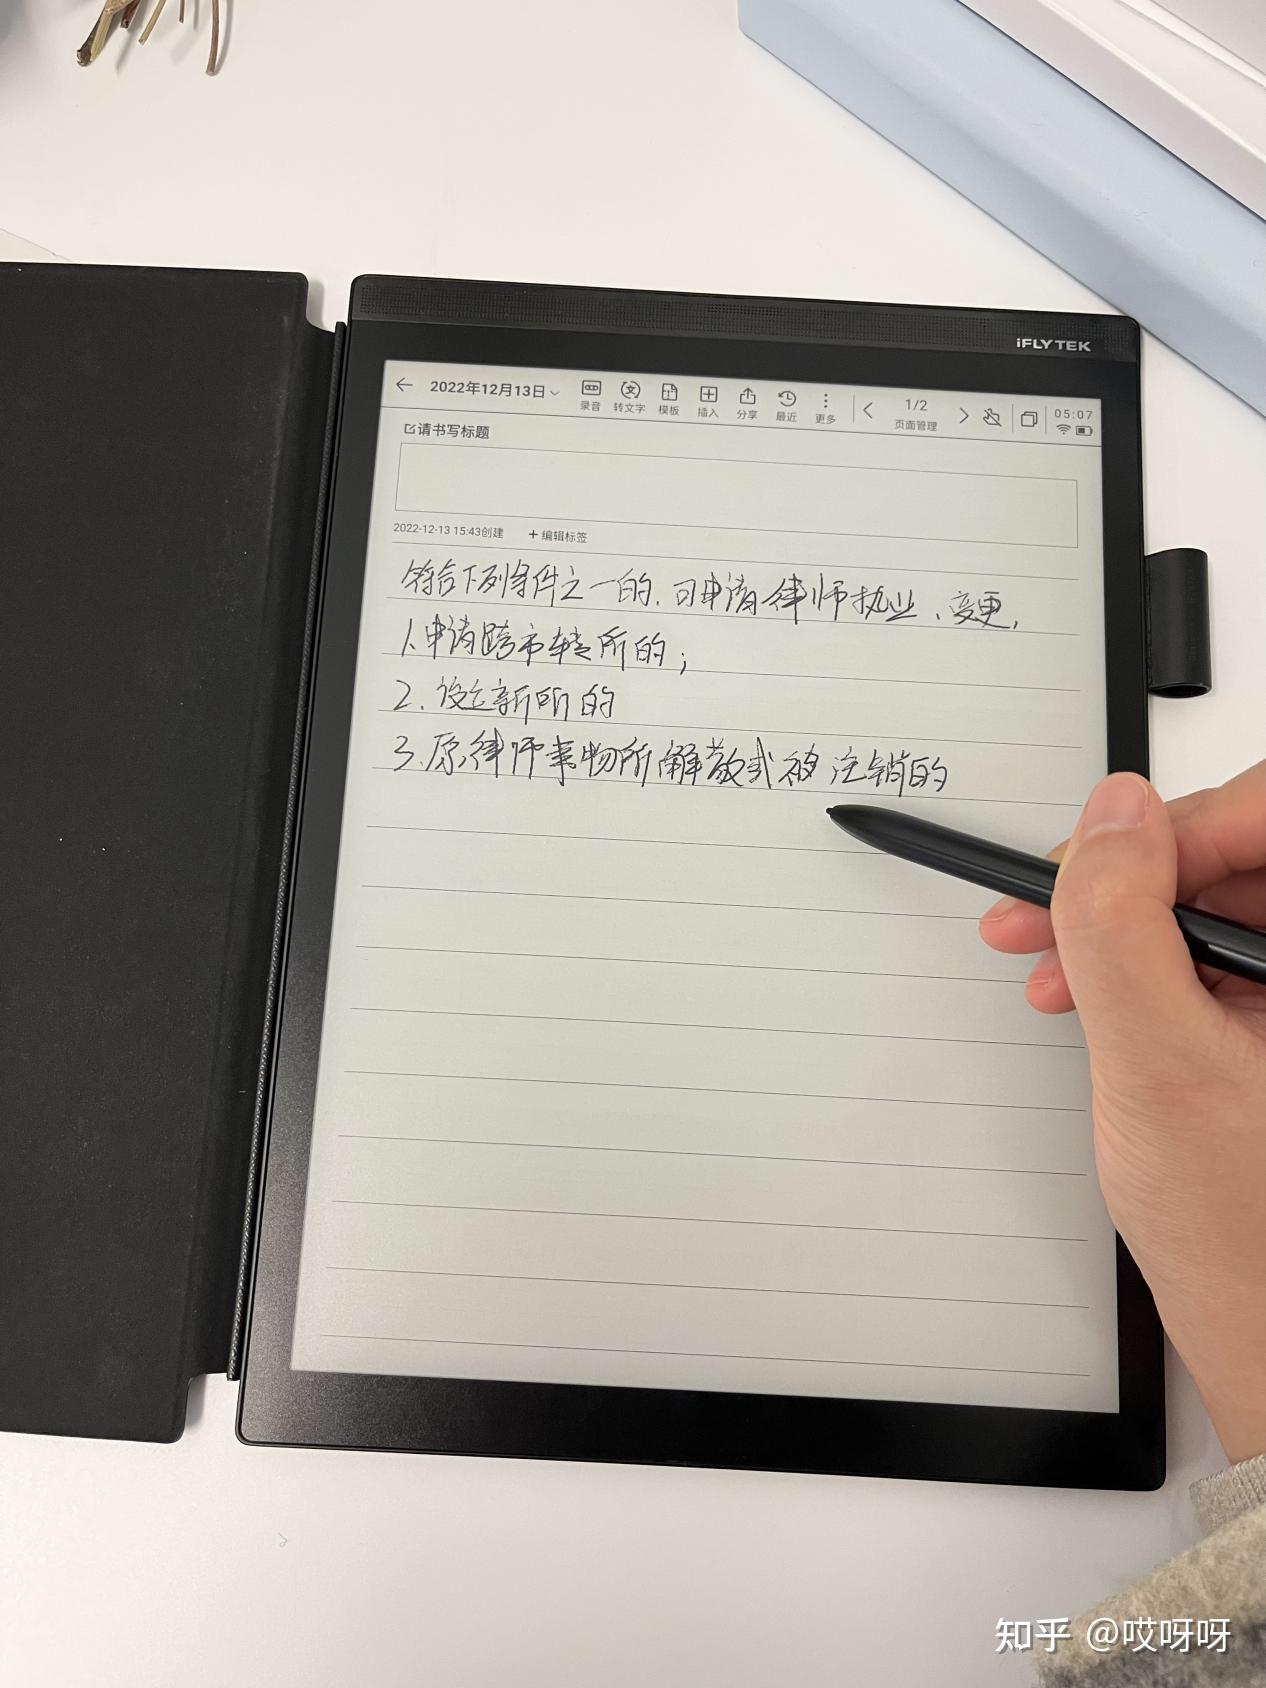 iFLYTEK
2022年12月13日
录音 转文字 模板 插入 分享 最近 更多
1/2
页面管理
05:07
请书写标题
2022-12-13 15:43创建 + 编辑标签
符合下列条件之一的，可申请律师执业、变更，
1.申请跨市转所的；
2.设立新所的
3.原律师事物所解散或被注销的
知乎 @哎呀呀